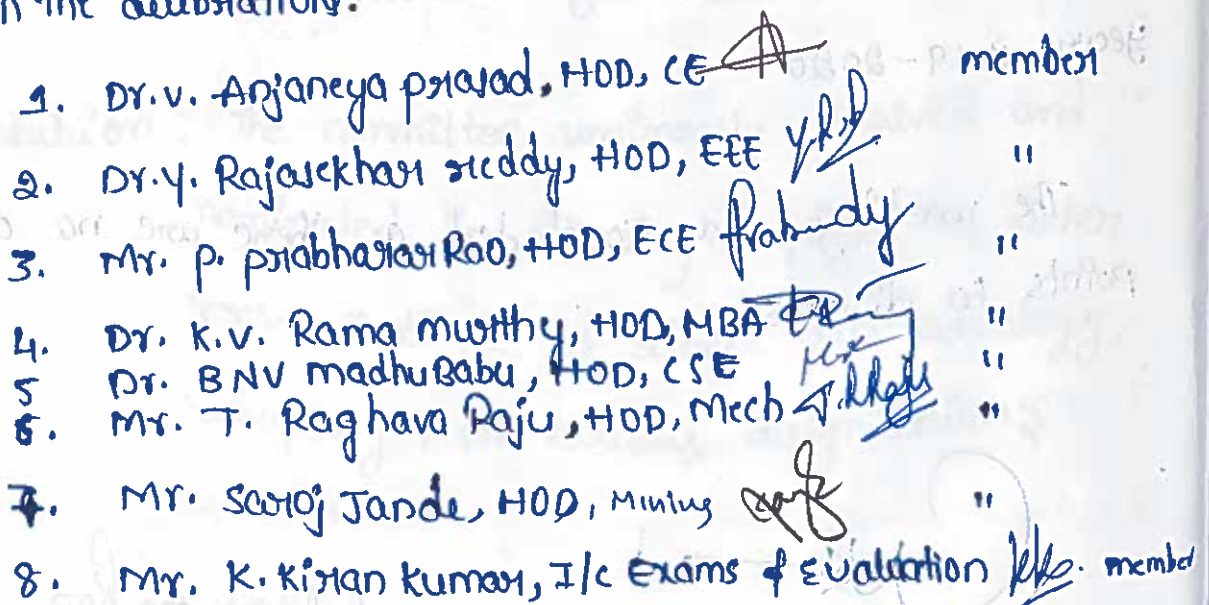 in the deliberations.
1. Dr. V. Anjaneya prasad, HOD, CE member
2. Dr. Y. Rajasekhar reddy, HOD, EEE "
3. Mr. P. prabhakar Rao, HOD, ECE "
4. Dr. K.V. Rama murthy, HOD, MBA "
5 Dr. BNV madhu Babu, HOD, CSE "
6. Mr. T. Raghava Raju, HOD, Mech "
7. Mr. Saroj Jande, HOD, Mining "
8. Mr. K. Kiran kumar, I/c Exams & Evaluation member